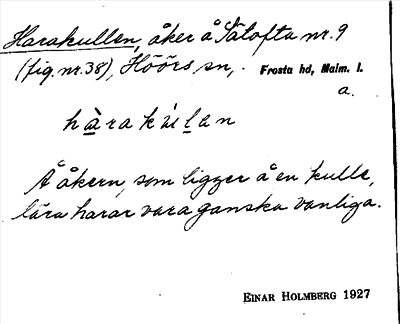 Harakullen, åker å Sätofta nr. 9
(fig. nr. 38), Höörs sn, Frosta hd, Malm. l.
a.
hàrakúlan
Å åkern, som ligger å en kulle,
lära harar vara ganska vanliga.
EINAR HOLMBERG 1927